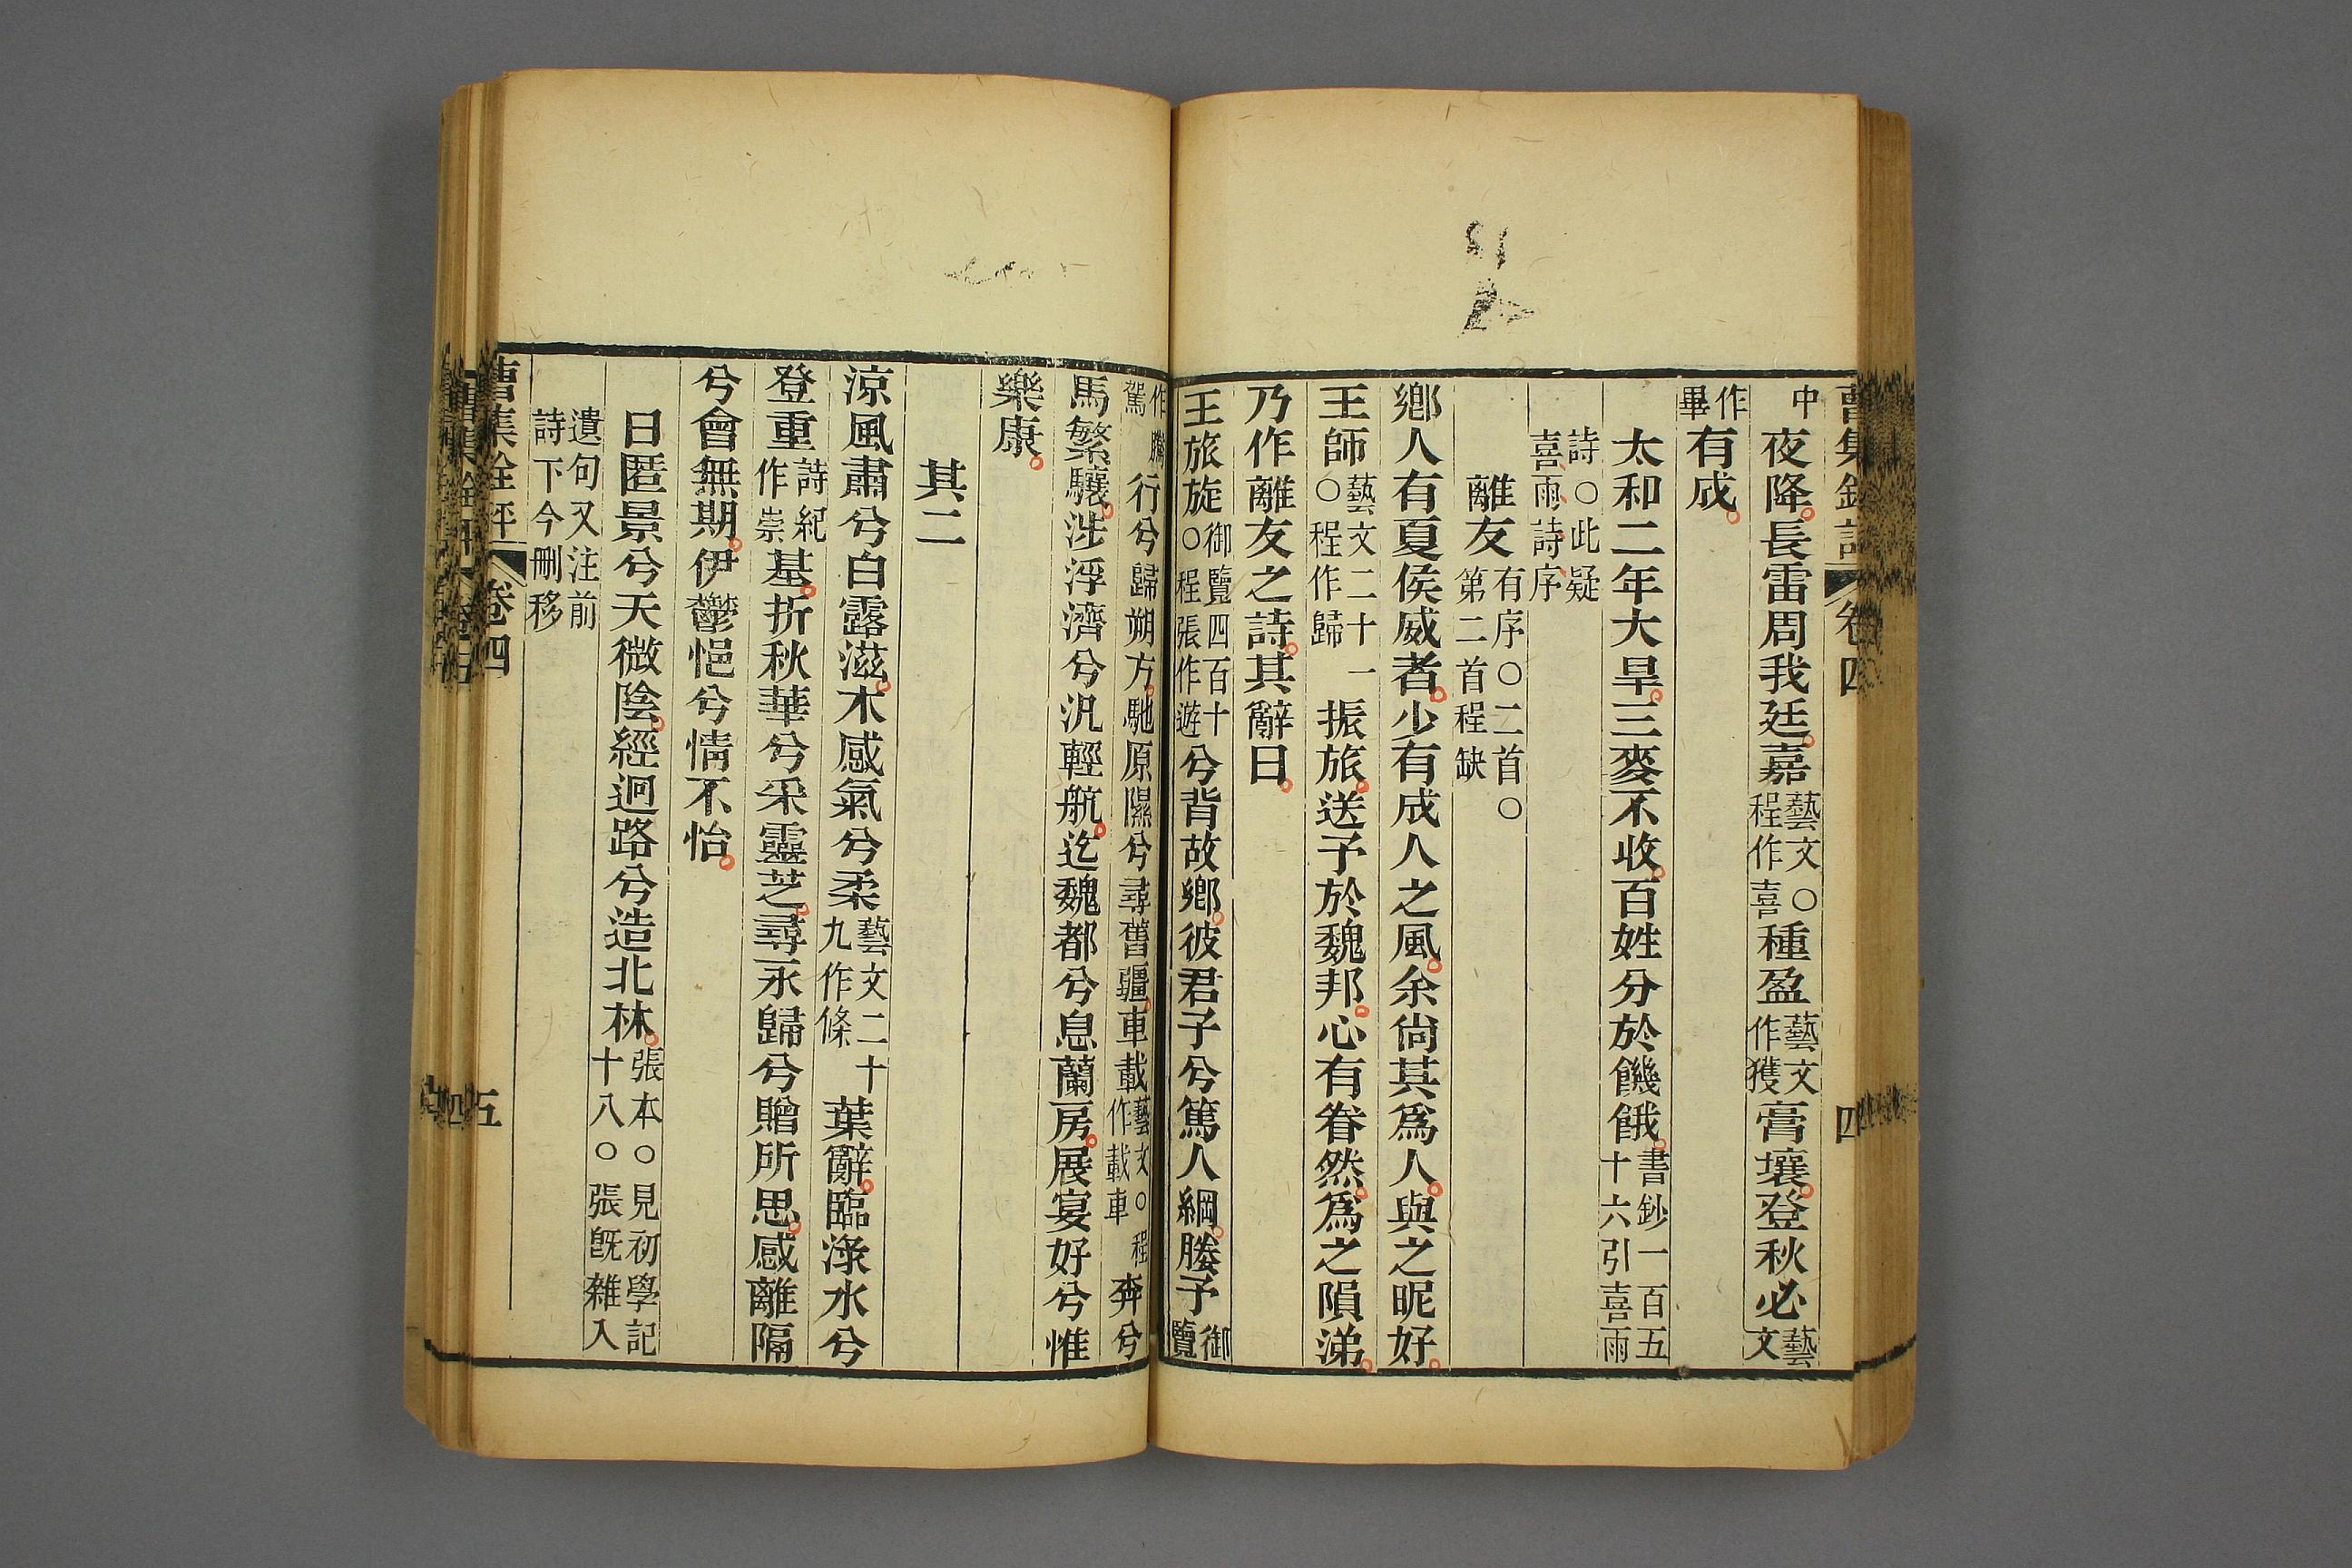 曹集銓評 卷四 四
中夜降長雷周我廷嘉藝文○程作喜種盈藝文作獲膏壤登秋必藝文
作畢有成
太和二年大旱三麥不收百姓分於饑餓書鈔一百五十六引喜雨
詩○此疑喜雨詩序
離友有序○二首○第二首程缺
鄉人有夏侯威者少有成人之風余尙其爲人與之昵好
王師藝文二十一○程作歸振旅送予於魏邦心有眷然爲之隕涕
乃作離友之詩其辭曰
王旅旋御覽四百十○程張作遊兮背故鄉彼君子兮篤人綱媵予御覽
作騰駕行兮歸朔方馳原隰兮尋舊疆車載藝文○程作載車奔兮
馬繁驤涉浮濟兮汎輕航迄魏都兮息蘭房展宴好兮惟
樂康
其二
涼風肅兮白露滋木感氣兮柔藝文二十九作條葉辭臨淥水兮
登重詩紀作崇基折秋華兮采靈芝尋永歸兮贈所思感離隔
兮會無期伊鬱悒兮情不怡
日匿景兮天微陰經迥路兮造北林張本○見初學記十八○張旣雜入
遺句又注前詩下今刪移
曹集銓評 卷四 五